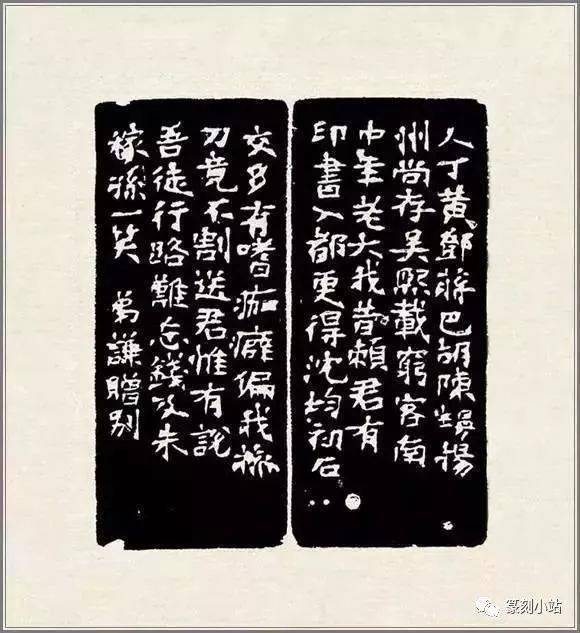 人丁黃鄧蔣巴胡陳揚
州尚存吳熙載窮客南
中年老大我昔賴君有
印書入都更得沈均初石
交多有嗜痂癖偏我操
刀竟不割送君惟有說
吾徒行路難錢及朱
稼孫一笑 謙贈別
篆刻小站